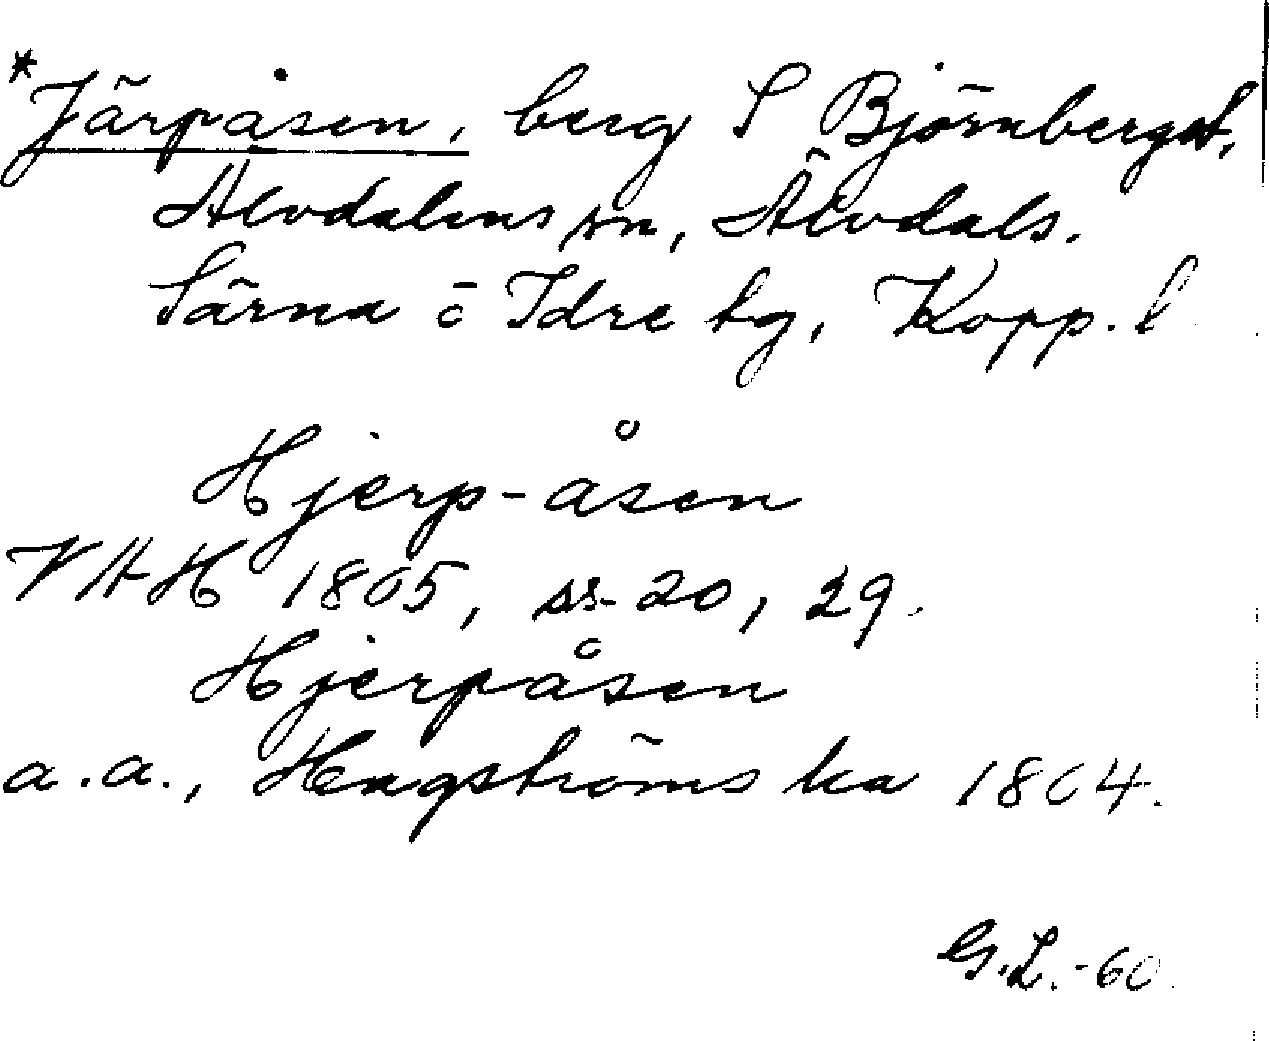 *Järpåsen, berg S Björnberget,
Älvdalens sn, Älvdals.
Särna ö Idre tg, Kopp. l
Hjerp-åsen
VHH 1805, ss. 20, 29.
Hjerpåsen
a.a., Hagströms ka 1804.
G.L.-60.